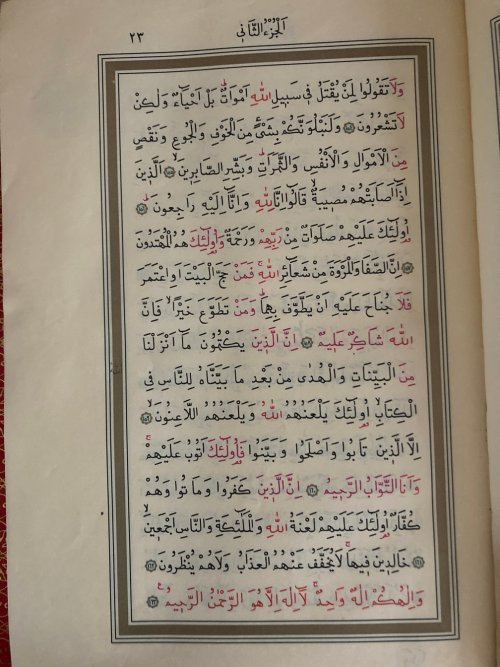 اَلْجُزْءُ الثَّانِي
٢٣
وَلَا تَقُولُوا لِمَنْ يُقْتَلُ فِي سَبِيلِ اللّٰهِ اَمْوَاتٌ بَلْ اَحْيَاءٌ وَلٰكِنْ
لَا تَشْعُرُونَ ﴿١٥٤﴾ وَلَنَبْلُوَنَّكُمْ بِشَيْءٍ مِنَ الْخَوْفِ وَالْجُوعِ وَنَقْصٍ
مِنَ الْاَمْوَالِ وَالْاَنْفُسِ وَالثَّمَرَاتِ وَبَشِّرِ الصَّابِرِينَ ﴿١٥٥﴾ اَلَّذِينَ
اِذَٓا اَصَابَتْهُمْ مُصِيبَةٌ قَالُٓوا اِنَّا لِلّٰهِ وَاِنَّٓا اِلَيْهِ رَاجِعُونَ ﴿١٥٦﴾
اُو۬لٰٓئِكَ عَلَيْهِمْ صَلَوَاتٌ مِنْ رَبِّهِمْ وَرَحْمَةٌ وَاُو۬لٰٓئِكَ هُمُ الْمُهْتَدُونَ
﴿١٥٧﴾ اِنَّ الصَّفَا وَالْمَرْوَةَ مِنْ شَعَٓائِرِ اللّٰهِ فَمَنْ حَجَّ الْبَيْتَ اَوِ اعْتَمَرَ
فَلَا جُنَاحَ عَلَيْهِ اَنْ يَطَّوَّفَ بِهِمَا وَمَنْ تَطَوَّعَ خَيْرًا فَاِنَّ
اللّٰهَ شَاكِرٌ عَلِيمٌ ﴿١٥٨﴾ اِنَّ الَّذِينَ يَكْتُمُونَ مَٓا اَنْزَلْنَا
مِنَ الْبَيِّنَاتِ وَالْهُدٰى مِنْ بَعْدِ مَا بَيَّنَّاهُ لِلنَّاسِ فِي
الْكِتَابِ اُو۬لٰٓئِكَ يَلْعَنُهُمُ اللّٰهُ وَيَلْعَنُهُمُ اللَّاعِنُونَ ﴿١٥٩﴾
اِلَّا الَّذِينَ تَابُوا وَاَصْلَحُوا وَبَيَّنُوا فَاُو۬لٰٓئِكَ اَتُوبُ عَلَيْهِمْ
وَاَنَا التَّوَّابُ الرَّحِيمُ ﴿١٦٠﴾ اِنَّ الَّذِينَ كَفَرُوا وَمَاتُوا وَهُمْ
كُفَّارٌ اُو۬لٰٓئِكَ عَلَيْهِمْ لَعْنَةُ اللّٰهِ وَالْمَلٰٓئِكَةِ وَالنَّاسِ اَجْمَعِينَ
﴿١٦١﴾ خَالِدِينَ فِيهَا لَا يُخَفَّفُ عَنْهُمُ الْعَذَابُ وَلَا هُمْ يُنْظَرُونَ ﴿١٦٢﴾
وَاِلٰهُكُمْ اِلٰهٌ وَاحِدٌ لَٓا اِلٰهَ اِلَّا هُوَ الرَّحْمٰنُ الرَّحِيمُ ﴿١٦٣﴾